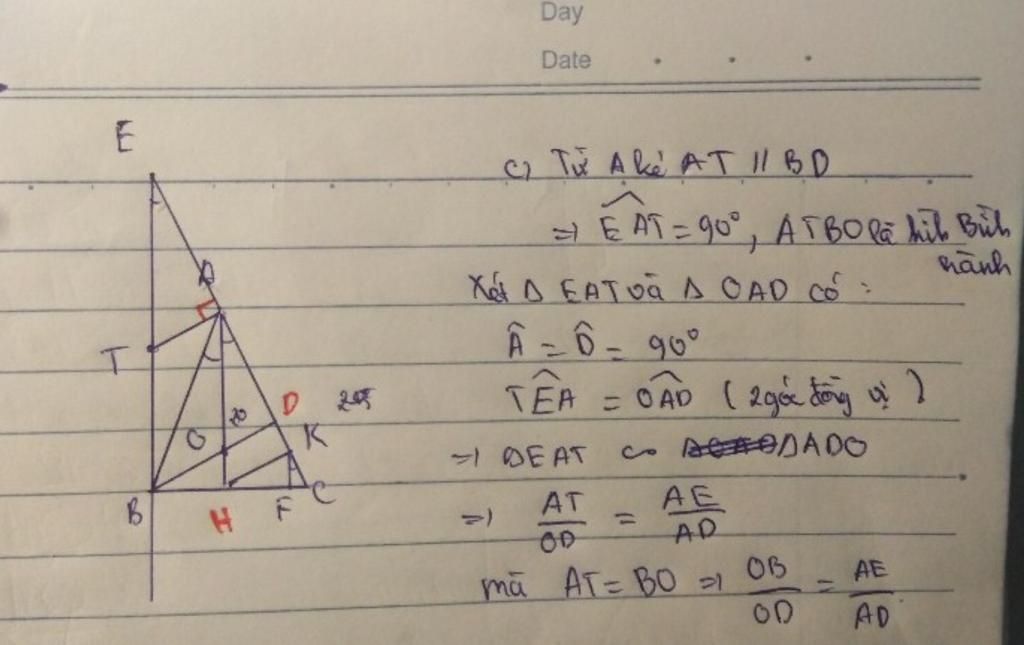 Day
Date
E
A
T
D
K
O
B
H
F
C
c) Từ A kẻ AT // BD
=> EAT = 90°, ATBO là hình Bình
hành
Xét Δ EAT và Δ OAD có :
Â = D̂ = 90°
TEA = OAD ( 2 góc đồng vị )
=> ΔEAT ∽ ΔADO
=> AT/OD = AE/AD
mà AT = BO => OB/OD = AE/AD